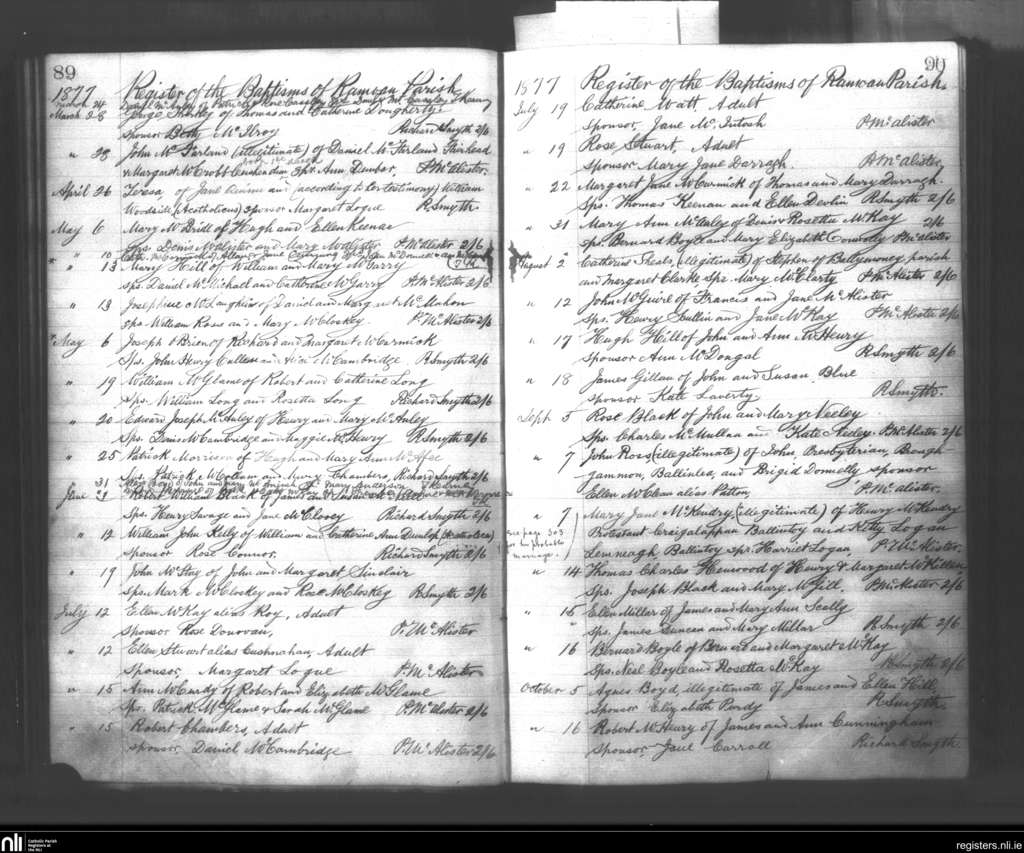 89
Register of the Baptisms of Ramoan Parish
1877
March 28 George Sharkey of Thomas and Catherine Dougherty
Sponsor Betty McIlroy Richard Smyth 2/6
" 28 John McFarland (illegitimate) of Daniel McFarland Fairhead
& Margaret McCrobb Cushendun Spr. Ann Dunbar, P. McAlister.
April 26 Teresa, of Jane and (according to her testimony) William
Woodside (Acatholicus) sponsor Margaret Logue R. Smyth.
May 6 Mary McBride of Hugh and Ellen Keenan
Sps. Denis McAlister and Mary McAlister P. McAlister 2/6
" 13 Mary Hill of William and Mary McGarry
Sps. Daniel McMichael and Catherine McGarry P. McAlister 2/6
" 13 Josephine McLaughlin of David and Margaret McMahon
Sps. William Ross and Mary McCloskey P. McAlister 2/6
May 6 Joseph O'Brien of Richard and Margaret McCormick
Sps. John Henry Cullen and McCambridge R Smyth 2/6
" 19 William McGlame of Robert and Catherine Long
Sps. William Long and Rosetta Long Richard Smyth 2/6
" 20 Edward Joseph McAuley of Henry and Mary McAuley
Sps. Denis McCambridge and Maggie McHenry R Smyth 2/6
" 25 Patrick Morrison of Hugh and Mary Ann McAfee
Sps. Patrick and Mary Chambers, Richard Smyth 2/6
31
June Robert William of John &
Sps. Henry Savage and Jane McClosey Richard Smyth 2/6
" 12 William John Kelly of William and Catherine Ann Dunlop
Sponsor Rose Connor, Richard Smyth 2/6
" 19 John McStay of John and Margaret Sinclair
Sps. Mark McCloskey and Rose McCloskey R Smyth 2/6
July 12 Ellen McKay alias Roy, Adult
Sponsor Rose Donovan, P. McAlister
" 12 Ellen Stewart alias Cushnahan, Adult
Sponsor, Margaret Logue P. McAlister
" 15 Ann McCurdy of Robert and Elizabeth McGlame
Sps. Patrick McGlame & Sarah McGlame P. McAlister 2/6
" 15 Robert Chambers, Adult
Sponsor, Daniel McCambridge P. McAlister 2/6
90
Register of the Baptisms of Ramoan Parish.
1877
July 19 Catherine Watt Adult
Sponsor, Jane McIntosh P. McAlister
" 19 Rose Stuart, Adult
Sponsor Mary Jane Darragh. P. McAlister,
" 22 Margaret Jane McCormick of Thomas and Mary Darragh.
Sps. Thomas Keenan and Ellen Devlin R Smyth 2/6
" 31 Mary Ann McCaley of Denis & Rosetta McKay 2/6
Sps. Bernard Boyle and Mary Elizabeth Connolly P. McAlister
August 2 Catherine Sheals, (illegitimate) of Stephen of Ballymoney parish
and Margaret Clarke Sps. Mary McClarty P. McAlister 2/6
" 12 John McGuire of Francis and Jane McAlister
Sps. Henry Cullin and Jane McKay P. McAlister 2/6
" 17 Hugh Hill of John and Ann McHenry
Sponsor Ann McDongal R Smyth 2/6
" 18 James Gillan of John and Susan Blue
Sponsor Kate Laverty R Smyth.
Sept 5 Rose Black of John and Mary Neeley
Sps. Charles McMullan and Kate Neeley. P. McAlister 2/6
" 7 John Ross (illegitimate) of John, Presbyterian, Bough
gammon, Ballinlea, and Brigid Donnelly sponsor
Ellen McClean alias Patton, P. McAlister.
" 7 Mary Jane McKendry, (illegitimate) of Henry McKendry
Protestant Craigalappan Ballintoy and Kitty Logan
Lemneagh Ballintoy Spr. Harriet Logan, P. McAlister.
See page 303
for the probable
marriage.
" 14 Thomas Charles Henwood of Henry & Margaret McKillen
Sps. Joseph Black and Mary McGill, P. McAlister 2/6
" 15 Ellen Millar of James and Mary Ann Scally
Sps. James Duncan and Mary Millar R Smyth 2/6
" 16 Bernard Boyle of Bernard and Margaret McKay
Sps. Neal Boyle and Rosetta McKay R Smyth 2/6
October 5 Agnes Boyd, illegitimate of James and Ellen Hill,
Sponsor Elizabeth Purdy R Smyth.
" 16 Robert McHenry of James and Ann Cunningham
Sponsor, Jane Carroll Richard Smyth.
nli
Catholic Parish
Registers at
the NLI
registers.nli.ie